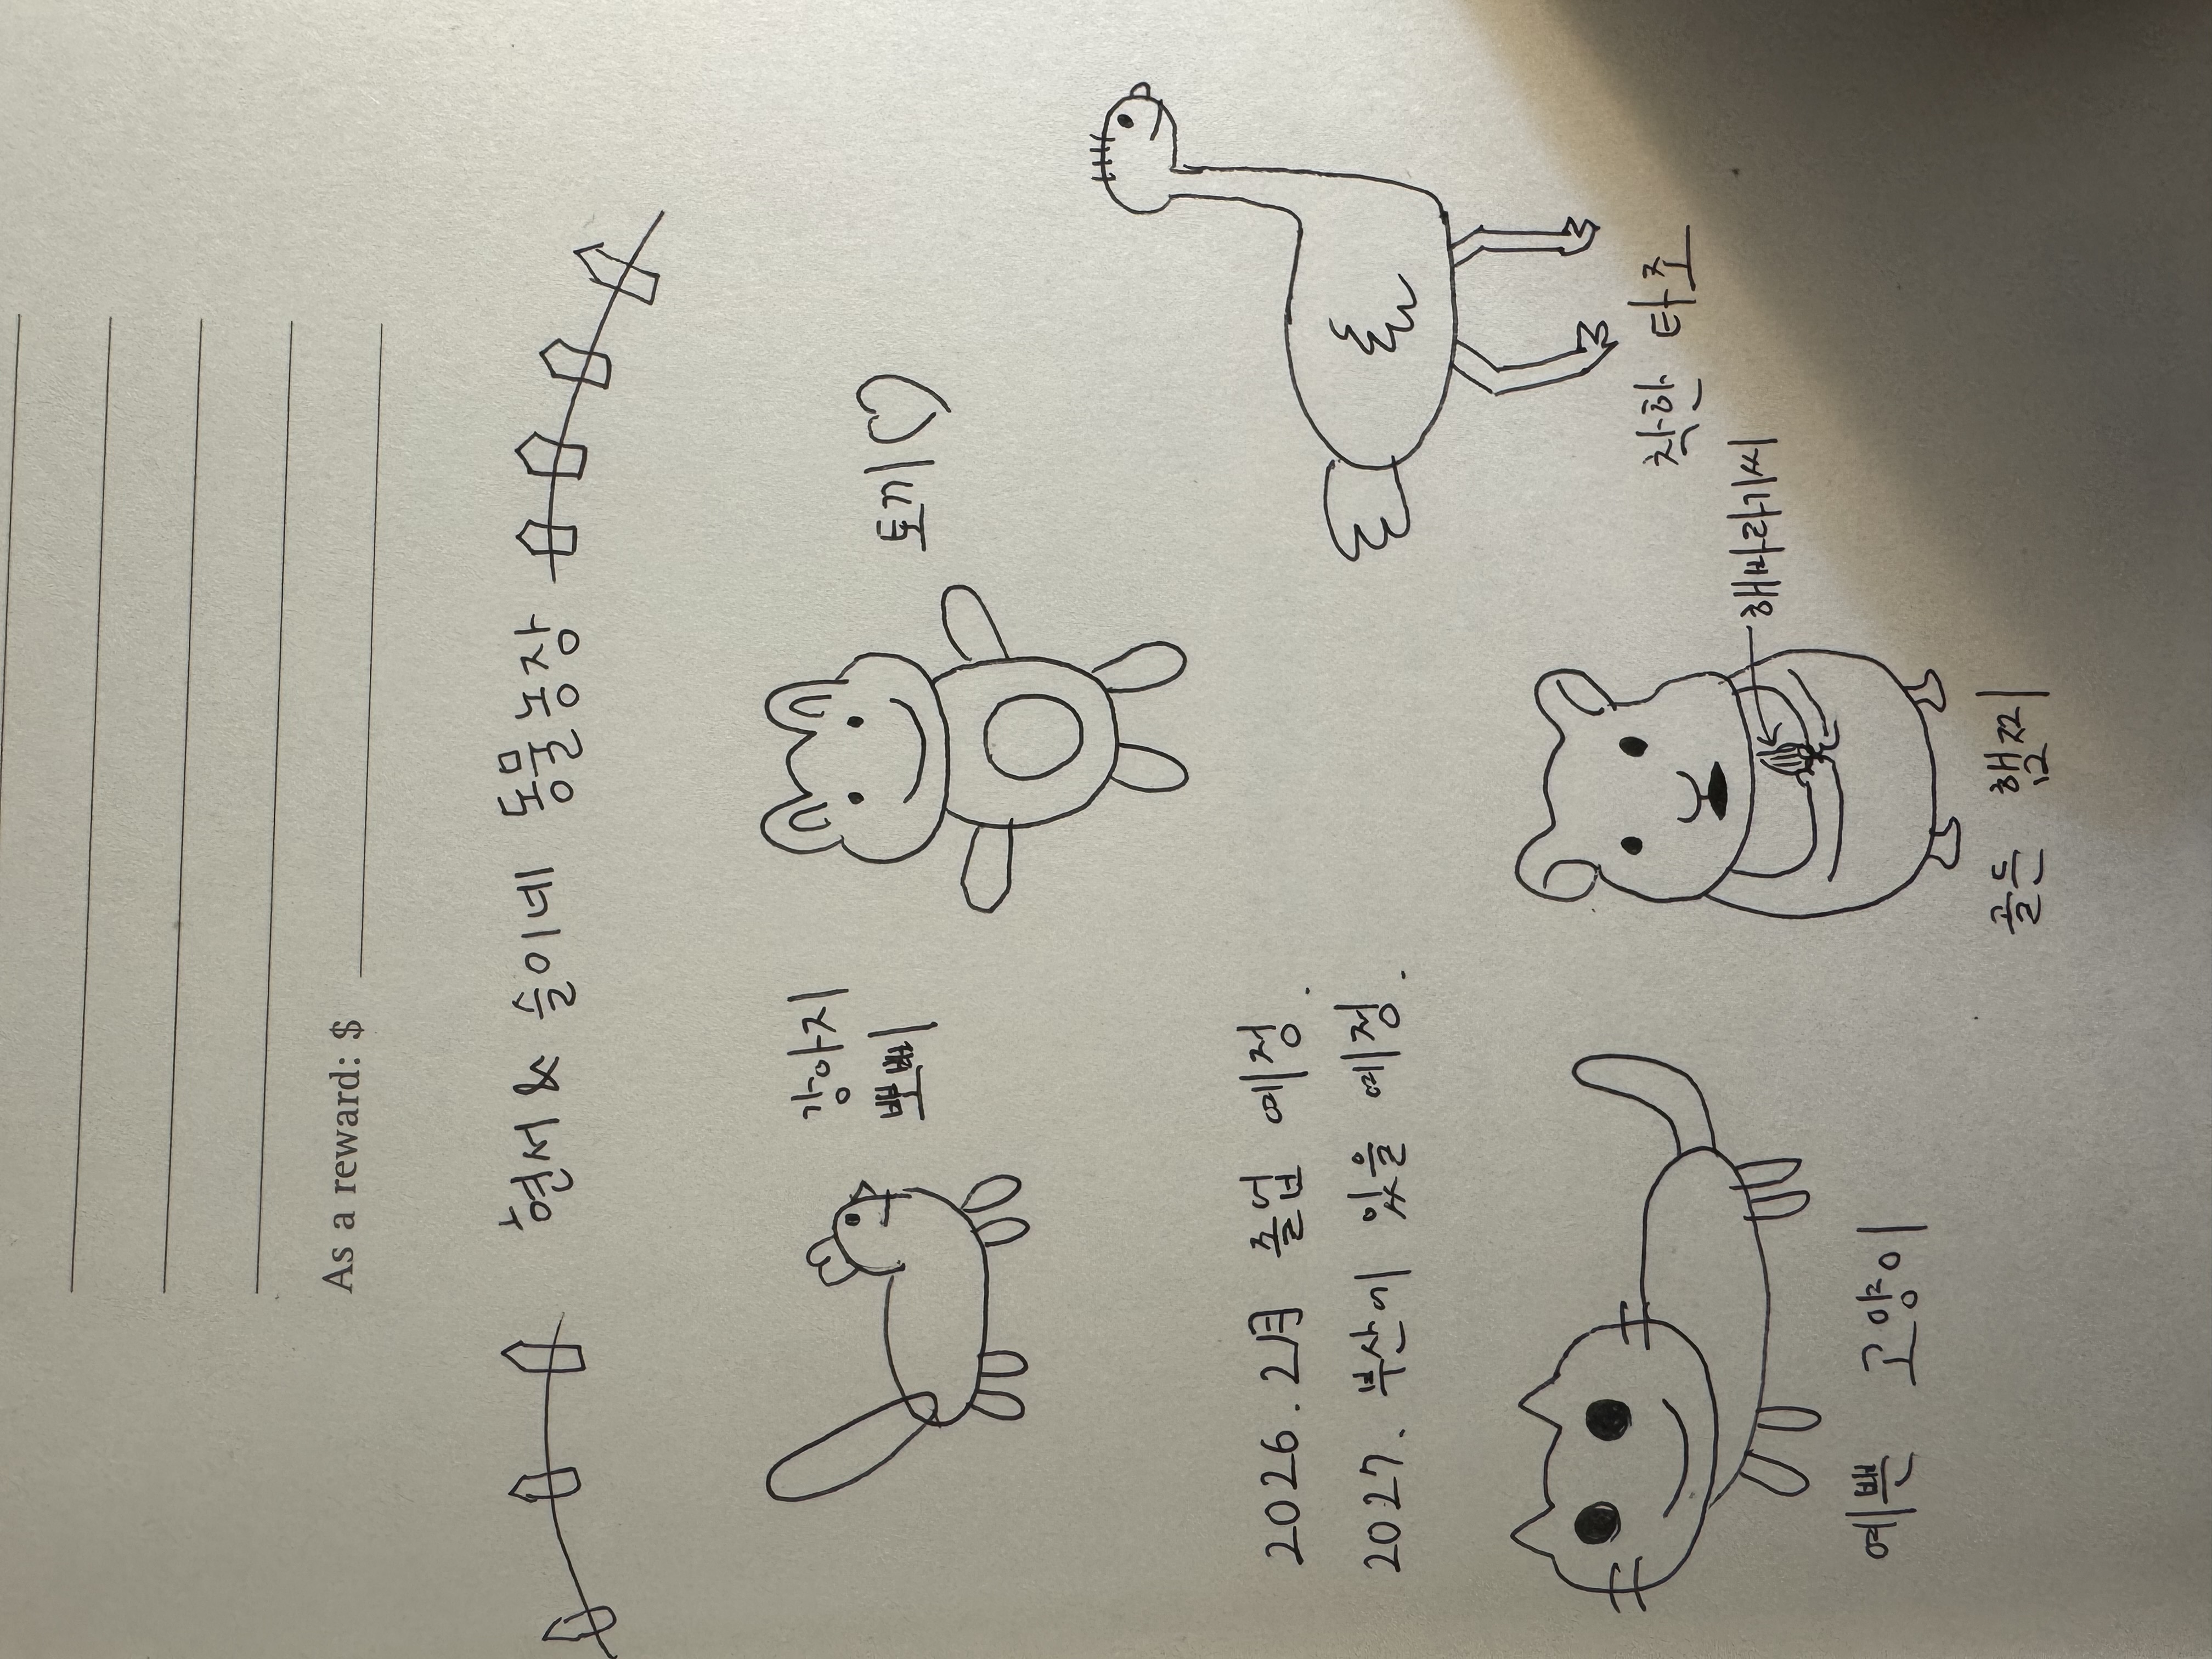 As a reward: $
현서 & 슬이네 동물농장
강아지
뽀삐
토끼♡
2026. 2月 졸업 예정.
2027. 부산에 있을 예정.
착한 타조
해바라기씨
예쁜 고양이
골든 햄찌